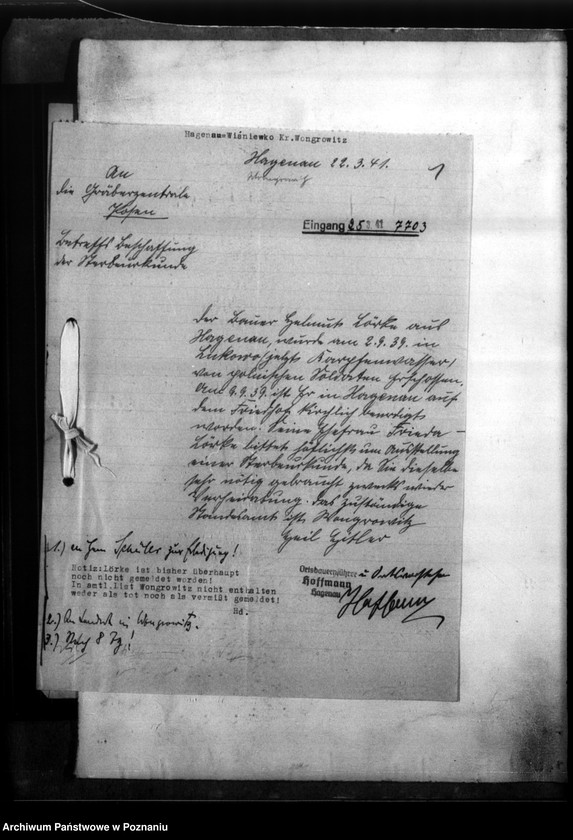 Hagenau=Wiśniewko Kr.Wongrowitz
Hagenau 22.3.41.
Wongrowitz
1
An
die Gräberzentrale
Posen
Eingang 25 3. 41 7703
Betreffs Beschaffung
der Sterbeurkunde
Der Bauer Helmut Lörke aus
Hagenau, wurde am 2.9.39. in
Lukowo (jetzt Karpfenwasser)
von polnischen Soldaten erschossen.
Am 9.9.39. ist Er in Hagenau auf
dem Friedhof kirchlich beerdigt
worden. Seine Ehefrau Frieda
Lörke bittet höflichst um Ausstellung
einer Sterbeurkunde, da Sie dieselbe
sehr nötig gebraucht zwecks wieder
Verheiratung. Das zuständige
Standesamt ist Wongrowitz
Heil Hitler
1.) an Herrn Schüler zur Erledigung!
Notiz:Lörke ist bisher überhaupt
noch nicht gemeldet worden!
In amtl.List Wongrowitz nicht enthalten
weder als tot noch als vermißt gemeldet!
Hd.
Ortsbauernführer u Ortsvorsteher
Hoffmann
Hagenau
Hoffmann
2.) An Landrat in Wongrowitz.
3.) Nach 8 Tg!
Archiwum Państwowe w Poznaniu